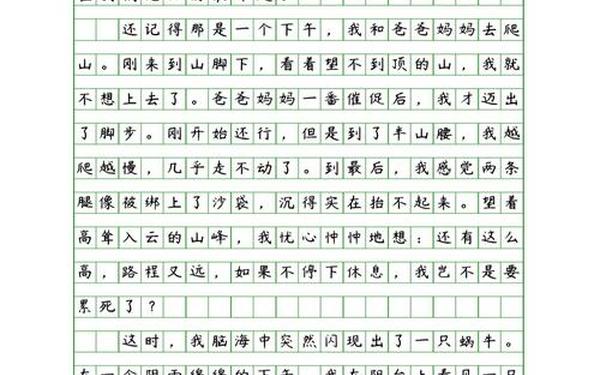 还记得那是一个下午，我和爸爸妈妈去爬
山。刚来到山脚下，看着望不到顶的山，我就
不想上去了。爸爸妈妈一番催促后，我才迈出
了脚步。刚开始还行，但是到了半山腰，我越
爬越慢，几乎走不动了。到最后，我感觉两条
腿像被绑上了沙袋，沉得实在抬不起来。望着
高耸入云的山峰，我忧心忡忡地想：还有这么
高，路程又远，如果不停下休息，我岂不是要
累死了？
这时，我脑海中突然闪现出了一只蜗牛。